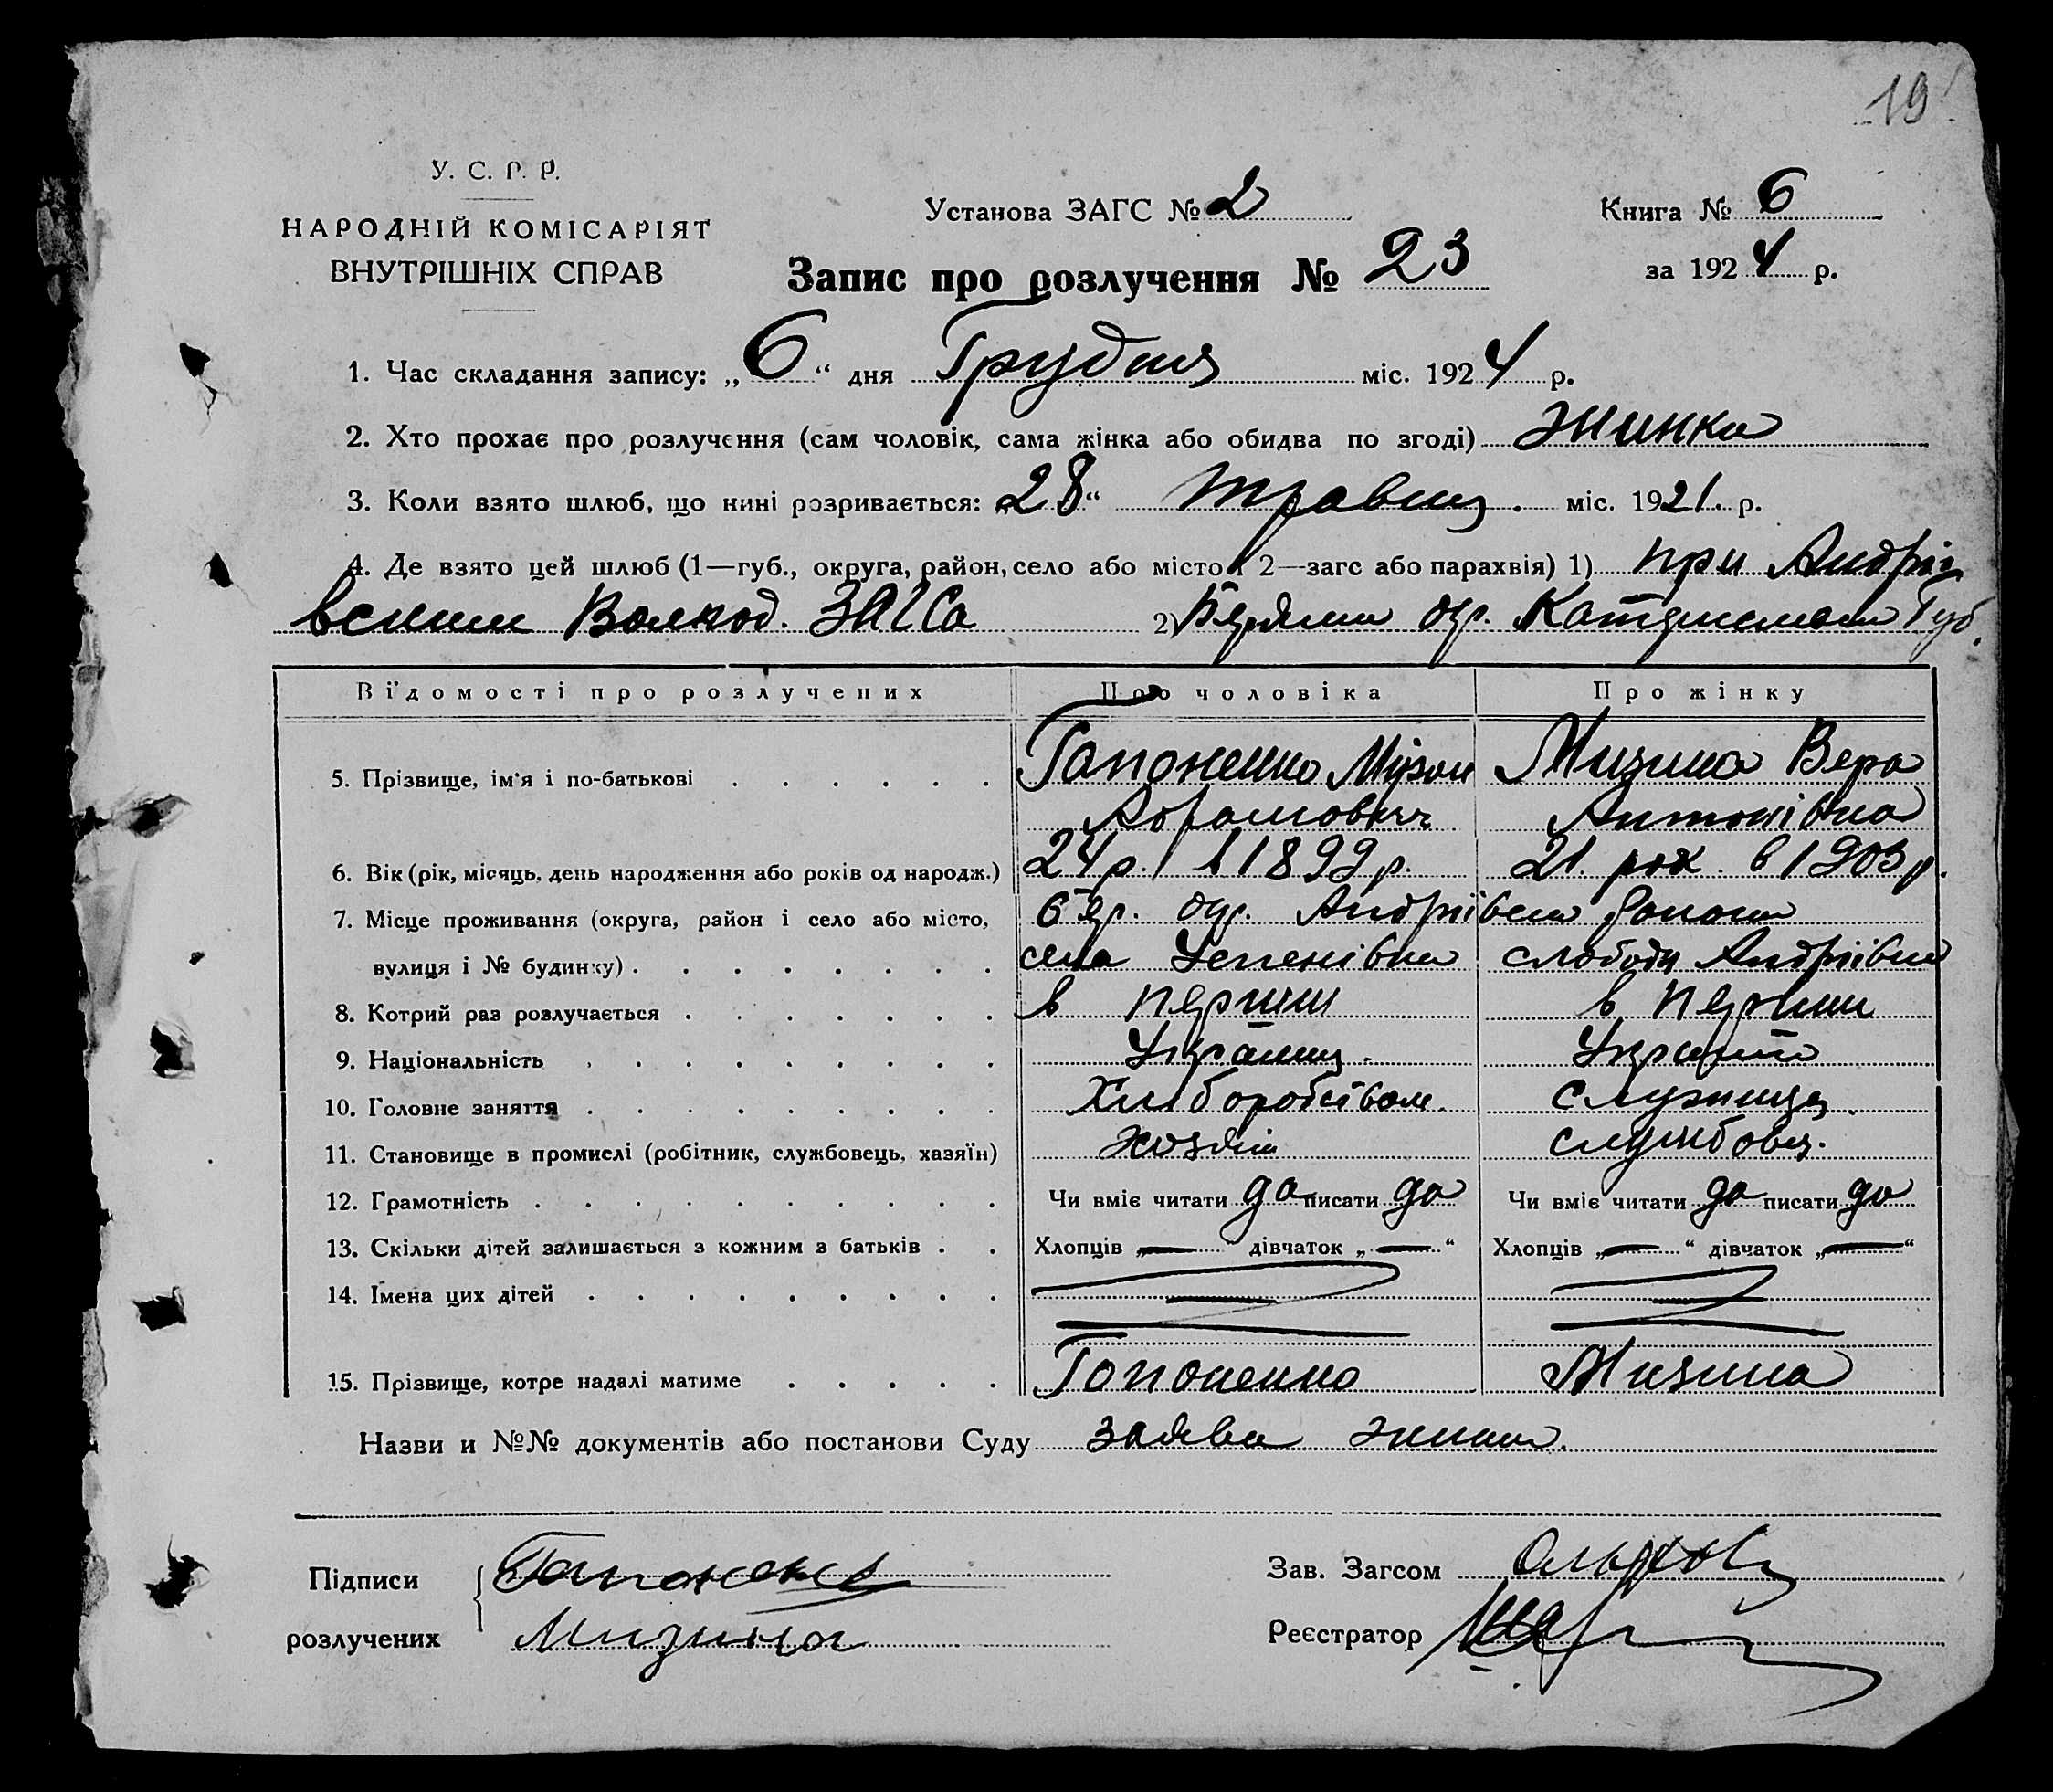 19
У. С. Р. Р.
НАРОДНІЙ КОМІСАРІЯТ
ВНУТРІШНІХ СПРАВ
Установа ЗАГС № 2
Книга № 6
Запис про розлучення № 23
за 1924 р.
1. Час складання запису: „6“ дня Грудня міс. 1924 р.
2. Хто прохає про розлучення (сам чоловік, сама жінка або обидва по згоді) жинка
3. Коли взято шлюб, що нині розривається: „28“ травня міс. 1921 р.
4. Де взято цей шлюб (1—губ., округа, район, село або місто 2—загс або парахвія) 1) при Андрії
ЗАГСа 2) окр. Губ.
Відомості про розлучених Про чоловіка Про жінку
5. Прізвище, ім'я і по-батькові . . . . . . Гапоненко Мизина Вера
Антонівна
6. Вік (рік, місяць, день народження або років од народж.) 24 р. в 1899 р. 21. рок. в 1903 р.
7. Місце проживання (округа, район і село або місто, окр. Андріївськ
вулиця і № будинку) . . . . . . . . села Успенівка слободи Андріївка
8. Котрий раз розлучається . . . . . . . в перший в перший
9. Національність . . . . . . . . .
10. Головне заняття . . . . . . . . . Хлиборобством.
11. Становище в промислі (робітник, службовець, хазяїн) хозяїн службовец.
12. Грамотність . . . . . . . . . . Чи вміє читати да писати да Чи вміє читати да писати да
13. Скільки дітей залишається з кожним з батьків . . Хлопців „—“ дівчаток „—“ Хлопців „—“ дівчаток „—“
14. Імена цих дітей . . . . . . . . .
15. Прізвище, котре надалі матиме . . . . . Гапоненко Мизина
Назви и №№ документів або постанови Суду заява жинки.
Підписи Гапоненко
Зав. Загсом
розлучених Мизина
Реєстратор